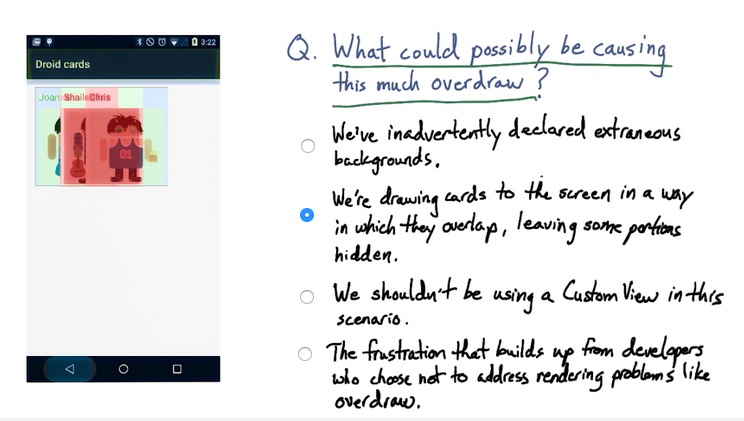 3:22
Droid cards
Joan Shaile Chris
Q. What could possibly be causing
this much overdraw?
We've inadvertently declared extraneous
backgrounds.
We're drawing cards to the screen in a way
in which they overlap, leaving some portions
hidden.
We shouldn't be using a Custom View in this
scenario.
The frustration that builds up from developers
who choose not to address rendering problems like
overdraw.